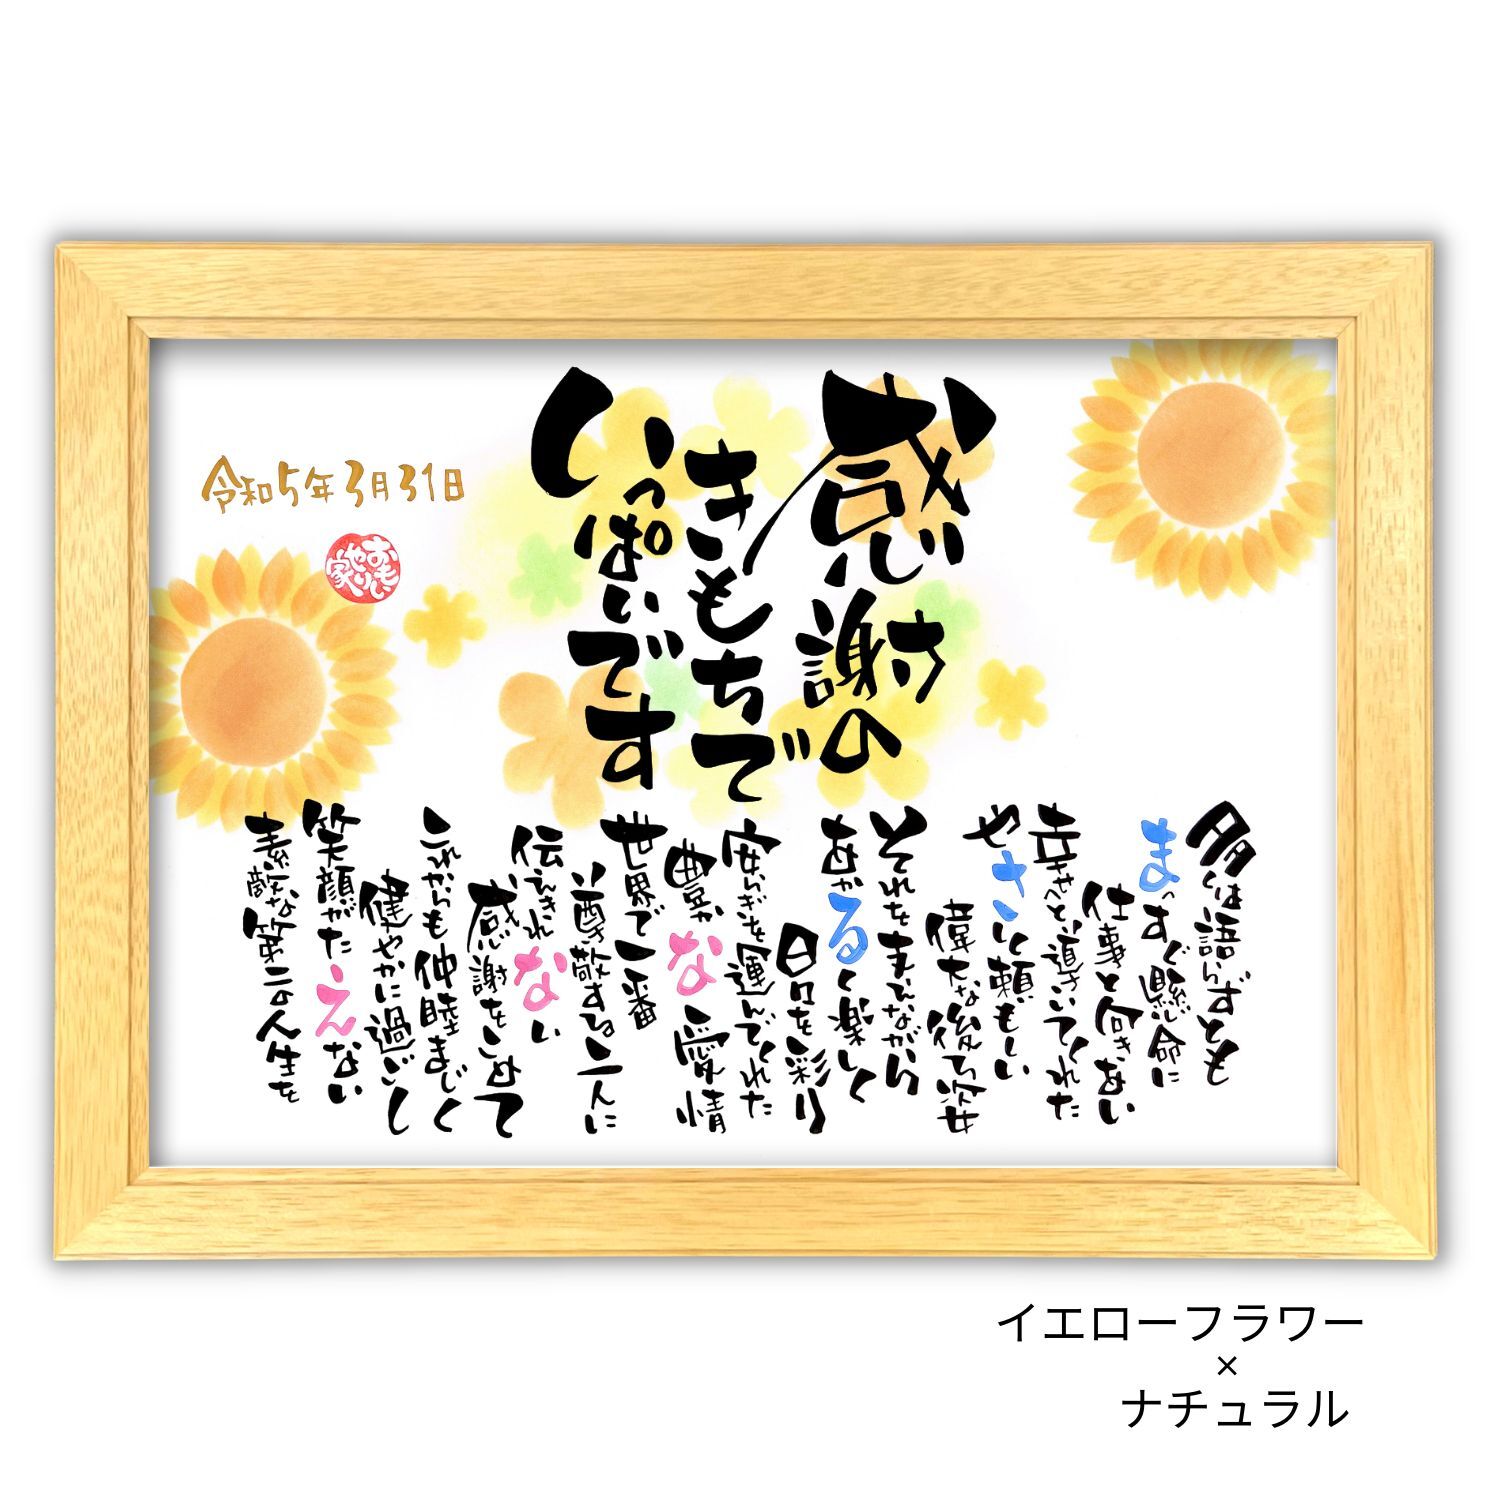 感謝の
きもちで
いっぱいです
令和5年3月31日
おもい
やり
家
多くは語らずとも
まっすぐ懸命に
仕事と向きあい
幸せへと導いてくれた
やさしく頼もしい
偉大な後ろ姿
それを支えながら
あかるく楽しく
日々を彩り
安らぎを運んでくれた
豊かな愛情
世界で一番
尊敬する二人に
伝えきれない
感謝をこめて
これからも仲睦まじく
健やかに過ごし
笑顔がたえない
素敵な第二の人生を
イエローフラワー
×
ナチュラル